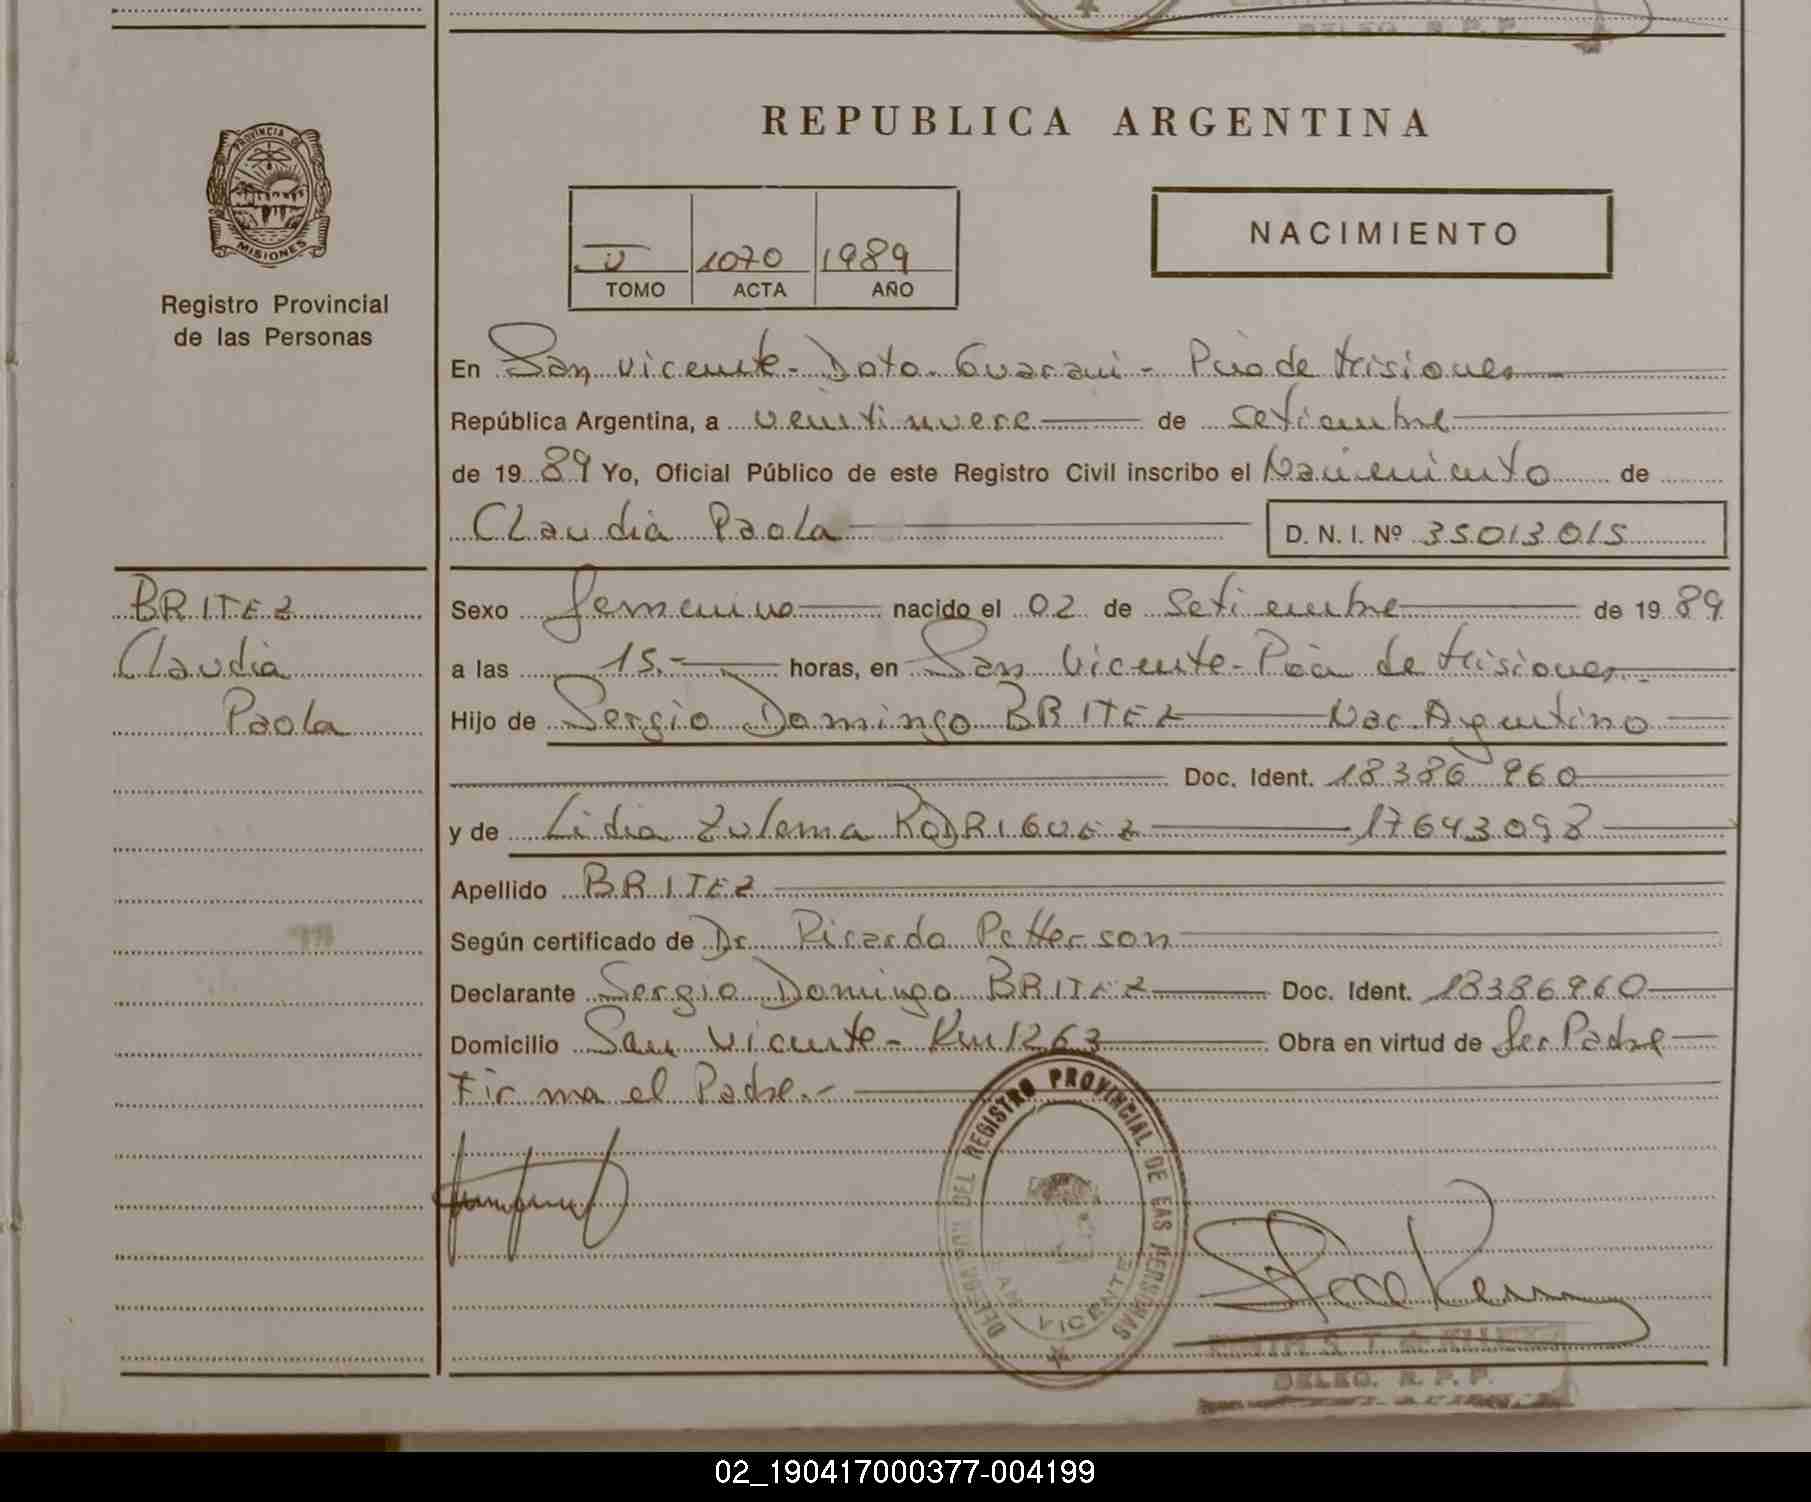 DELEG. R. P. P.
PROVINCIA DE
MISIONES
Registro Provincial
de las Personas
REPUBLICA ARGENTINA
NACIMIENTO
1070 1989
TOMO ACTA AÑO
En San Vicente - Dpto. Guarani - Pcia de Misiones
República Argentina, a veintinueve de setiembre
de 1989 Yo, Oficial Público de este Registro Civil inscribo el Nacimiento de
Claudia Paola D. N. I. Nº 35013015
BRITEZ
Claudia
Paola
Sexo femenino nacido el 02 de setiembre de 1989
a las 15.- horas, en San Vicente - Pcia de Misiones.
Hijo de Sergio Domingo BRITEZ Nac. Argentino
Doc. Ident. 18386960
y de Lidia Zulema RODRIGUEZ 17643098
Apellido BRITEZ
Según certificado de Dr. Ricardo Petterson
Declarante Sergio Domingo BRITEZ Doc. Ident. 18386960
Domicilio San Vicente - Km 1263 Obra en virtud de Ser Padre
Firma el Padre.-
DELEGA DEL REGISTRO PROVINCIAL DE LAS PERSONAS
SAN VICENTE
DELEG. R. P. P.
02_190417000377-004199